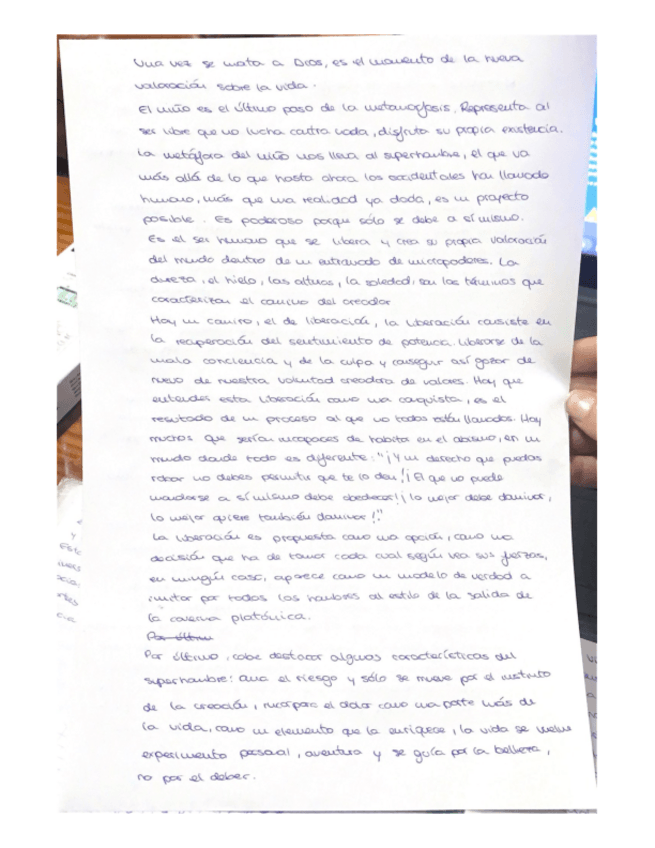 Una vez se mata a Dios, es el momento de la nueva
valoración sobre la vida.
El niño es el último paso de la metamorfosis. Representa al
ser libre que no lucha contra nada, disfruta su propia existencia.
La metáfora del niño nos lleva al superhombre, el que va
más allá de lo que hasta ahora los occidentales han llamado
humano, más que una realidad ya dada, es un proyecto
posible. Es poderoso porque sólo se debe a sí mismo.
Es el ser humano que se libera y crea su propia valoración
del mundo dentro de un entramado de micropoderes. La
dureza, el hielo, las alturas, la soledad, son los términos que
caracterizan el camino del creador
Hay un camino, el de liberación, la liberación consiste en
la recuperación del sentimiento de potencia. Liberarse de la
mala conciencia y de la culpa y conseguir así gozar de
nuevo de nuestra voluntad creadora de valores. Hay que
entender esta liberación como una conquista, es el
resultado de un proceso al que no todos están llamados. Hay
muchos que serían incapaces de habitar en el abismo, en un
mundo donde todo es diferente: "¡Y un derecho que puedas
robar no debes permitir que te lo den! ¡El que no puede
mandarse a sí mismo debe obedecer! ¡lo mejor debe dominar,
lo mejor quiere también dominar!"
La liberación es propuesta como una opción, como una
decisión que ha de tomar cada cual según vea sus fuerzas,
en ningún caso, aparece como un modelo de verdad a
imitar por todos los hombres al estilo de la salida de
la caverna platónica.
Por último
Por último, cabe destacar algunas características del
superhombre: ama el riesgo y sólo se mueve por el instinto
de la creación, incorpora el dolor como una parte más de
la vida, como un elemento que la enriquece, la vida se vuelve
experimento personal, aventura y se guía por la belleza,
no por el deber.